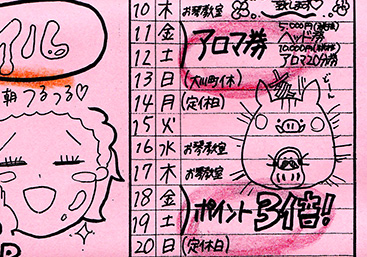 イル
朝つるつる♡
致します♡
10 木 お琴教室
11 金
12 土
アロマ券
5,000円(税抜)
ヘッド券
10,000円(税抜)
アロマ20分券
13 日 (大山町休)
14 月 (定休日)
15 火
16 水 お琴教室
17 木 お琴教室
18 金
19 土
ポイント3倍!
20 日 (定休日)